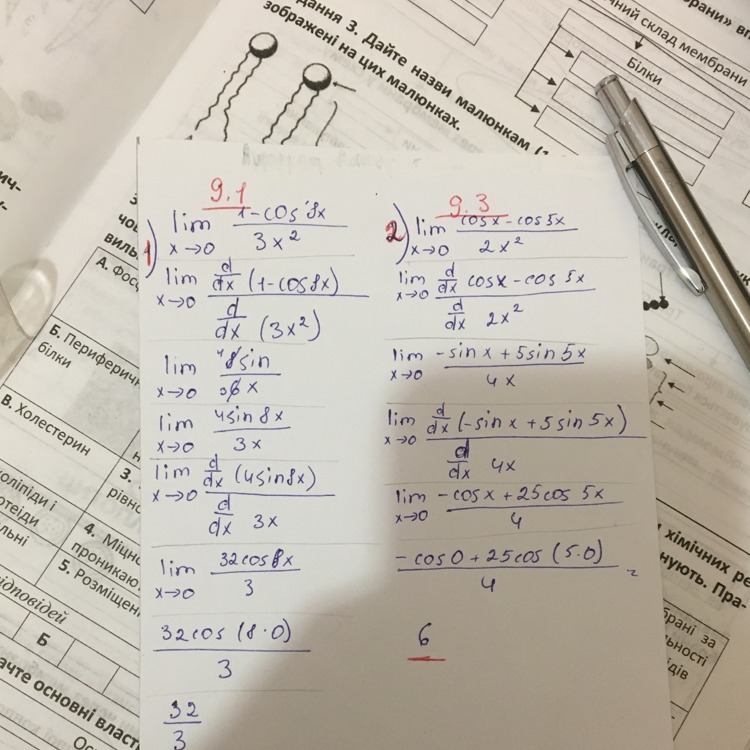 дання 3. Дайте назви малюнкам
зображені на цих малюнках.
ний склад мембрани
брани»
Білки
9.1
1) lim x→0 1-cos 8x / 3x²
lim x→0 d/dx (1-cos8x) / d/dx (3x²)
lim x→0 8sin / 6x
lim x→0 4sin 8x / 3x
lim x→0 d/dx (4sin8x) / d/dx 3x
lim x→0 32cos8x / 3
32cos (8·0) / 3
32/3
9.3
2) lim x→0 cosx - cos5x / 2x²
lim x→0 d/dx cosx - cos 5x / d/dx 2x²
lim x→0 -sinx + 5sin 5x / 4x
lim x→0 d/dx (-sinx + 5sin 5x) / d/dx 4x
lim x→0 -cosx + 25cos 5x / 4
-cos0 + 25cos (5·0) / 4 =
6
А. Фос
Б. Периферичн
білки
В. Холестерин
3.
рівно
4. Міцно
проникаю
5. Розміщені
оліпіди і
отеїди
льні
ідповідей
Б
ачте основні власт
Осн
хімічних ре
нують. Пра-
брані за
льності
ідів